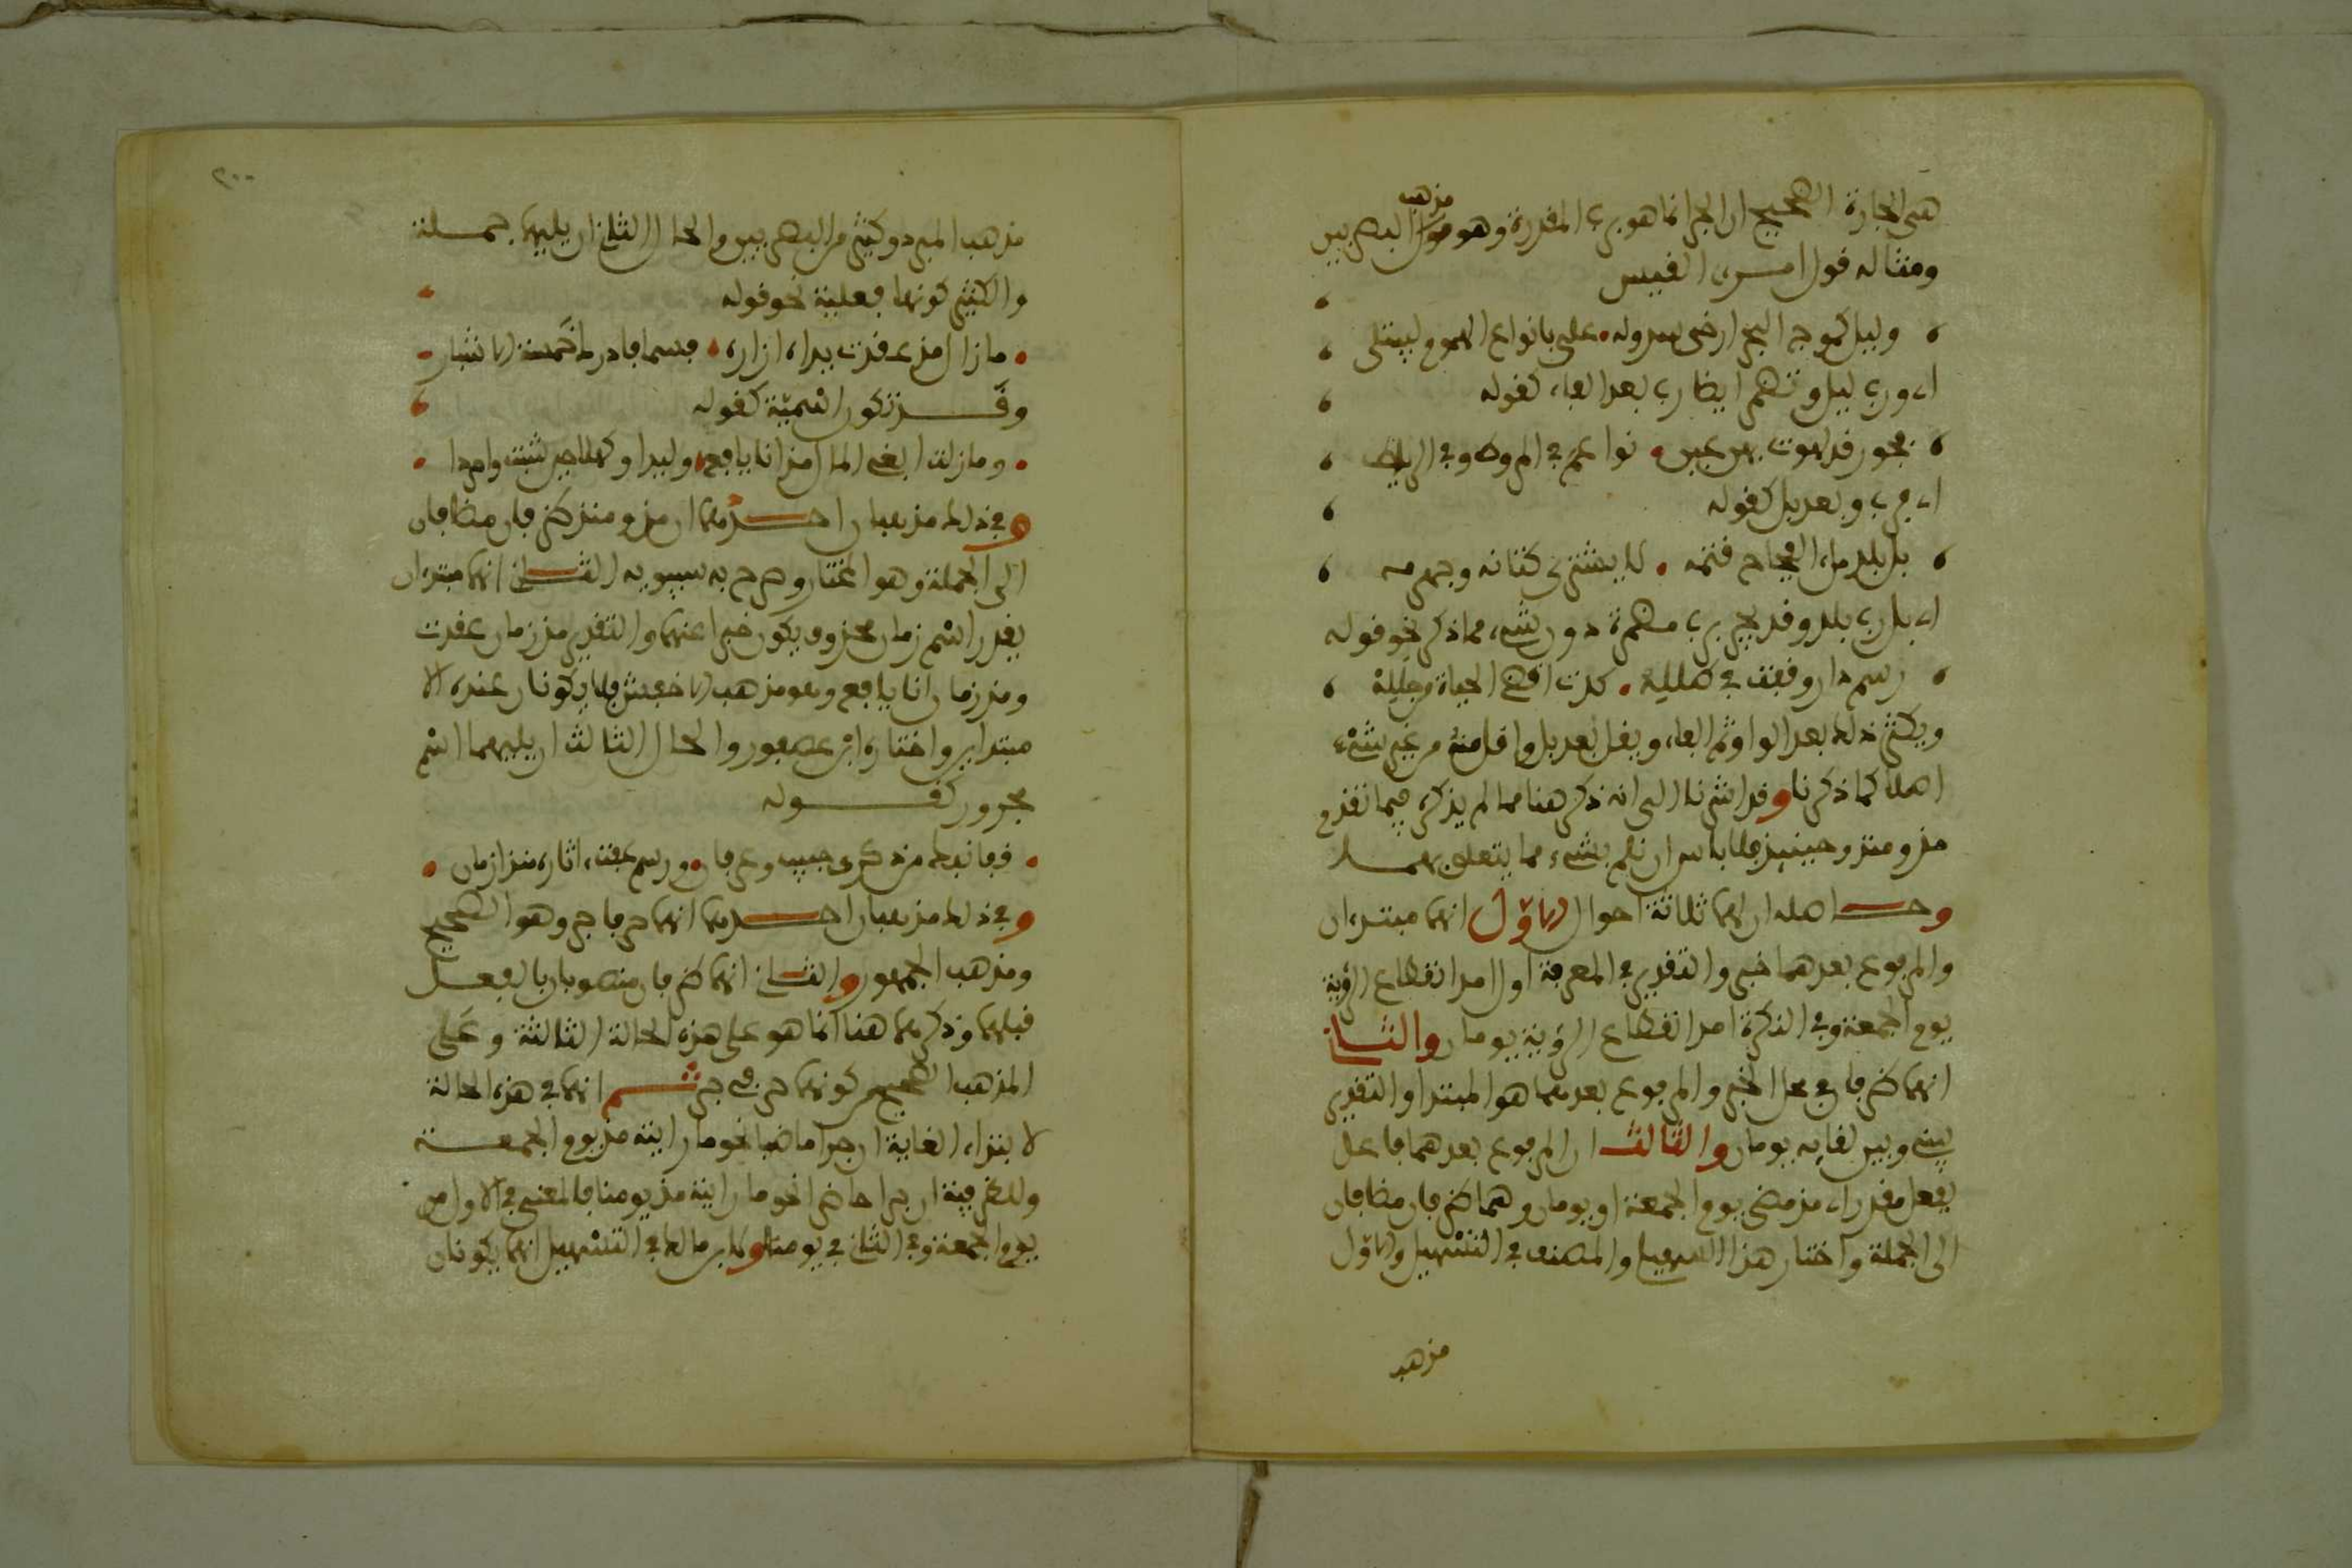 هى الجارة الصحيح ان الجر انما هو برب المقدرة وهو مذهب البصريين
ومثاله قول امرىء القيس
وليل كموج البحر ارخى سدوله على بانواع الهموم ليبتلى
اى ورب ليل وتضمر ايضا رب بعد الفاء كقوله
فحور قد لهوت بهن عين نواعم فى المروط وفى الرياط
اى فرب وبعد بل كقوله
بل بلد ملء الفجاج قتمه لا يشترى كتانه وجهرمه
اى بل رب بلد وقد تجر رب مضمرة دون شىء مما ذكر نحو قوله
رسم دار وقفت فى طلله كدت اقضى الحياة من جلله
ويكثر ذلك بعد الواو ثم الفاء ويقل بعد بل واقل منه من غير شىء
اصلا كما ذكرنا وقد اشرنا الى انه ذكر هنا ما لم يذكره فيما تقدم
مذ ومنذ وحينئذ فلا باس ان نلم بشىء مما يتعلق بهما
وحاصله ان لهما ثلاثة احوال الاول انهما مبتدءان
والمرفوع بعدهما خبر والتقدير فى المعرفة اول امد انقطاع الرؤية
يوم الجمعة وفى النكرة امد انقطاع الرؤية يومان والثانى
انهما ظرفان فى محل الخبر والمرفوع بعدهما هو المبتدا والتقدير
بينى وبين لقايه يومان والثالث ان المرفوع بعدهما فاعل
بفعل مقدر اى مذ مضى يوم الجمعة او يومان وهما ظرفان مضافان
الى الجملة واختار هذا السهيلى والمصنف فى التسهيل والاول
مذهب
٢٠٠
مذهب المبرد وكثير من البصريين والحال الثانى ان يليهما جملة
والكثير كونها فعلية نحو قوله
ما زال مذ عقدت يداه ازاره فسما فادرك خمسة الاشبار
وقد تكون اسمية كقوله
وما زلت ابغى المال مذ انا يافع وليدا وكهلا حين شبت وامردا
وفى ذلك مذهبان احدهما ان مذ ومنذ ظرفان مضافان
الى الجملة وهو المختار وصرح به سيبويه الثانى انهما مبتدءان
يقدر اسم زمان محذوف يكون خبرا عنهما والتقدير مذ زمان عقدت
ومذ زمان انا يافع وهو مذهب الاخفش فلا يكونان عنده الا
مبتداين واختاره ابن عصفور والحال الثالث ان يليهما اسم
مجرور كقوله
قفا نبك من ذكرى حبيب وعرفان ورسم عفت اثاره منذ ازمان
وفى ذلك مذهبان احدهما انهما حرفا جر وهو الصحيح
ومذهب الجمهور والثانى انهما ظرفان منصوبان بالفعل
قبلهما وذكرهما هنا انما هو على هذه الحالة الثالثة وعلى
المذهب الصحيح من كونهما حرفى جر ثم انهما فى هذه الحالة
لابتداء الغاية ان جرا ماضيا نحو ما رايته مذ يوم الجمعة
وللظرفية ان جرا حاضرا نحو ما رايته مذ يومنا فالمعنى فى الاول من
يوم الجمعة وفى الثانى فى يومنا ولابن مالك فى التسهيل انهما يكونان